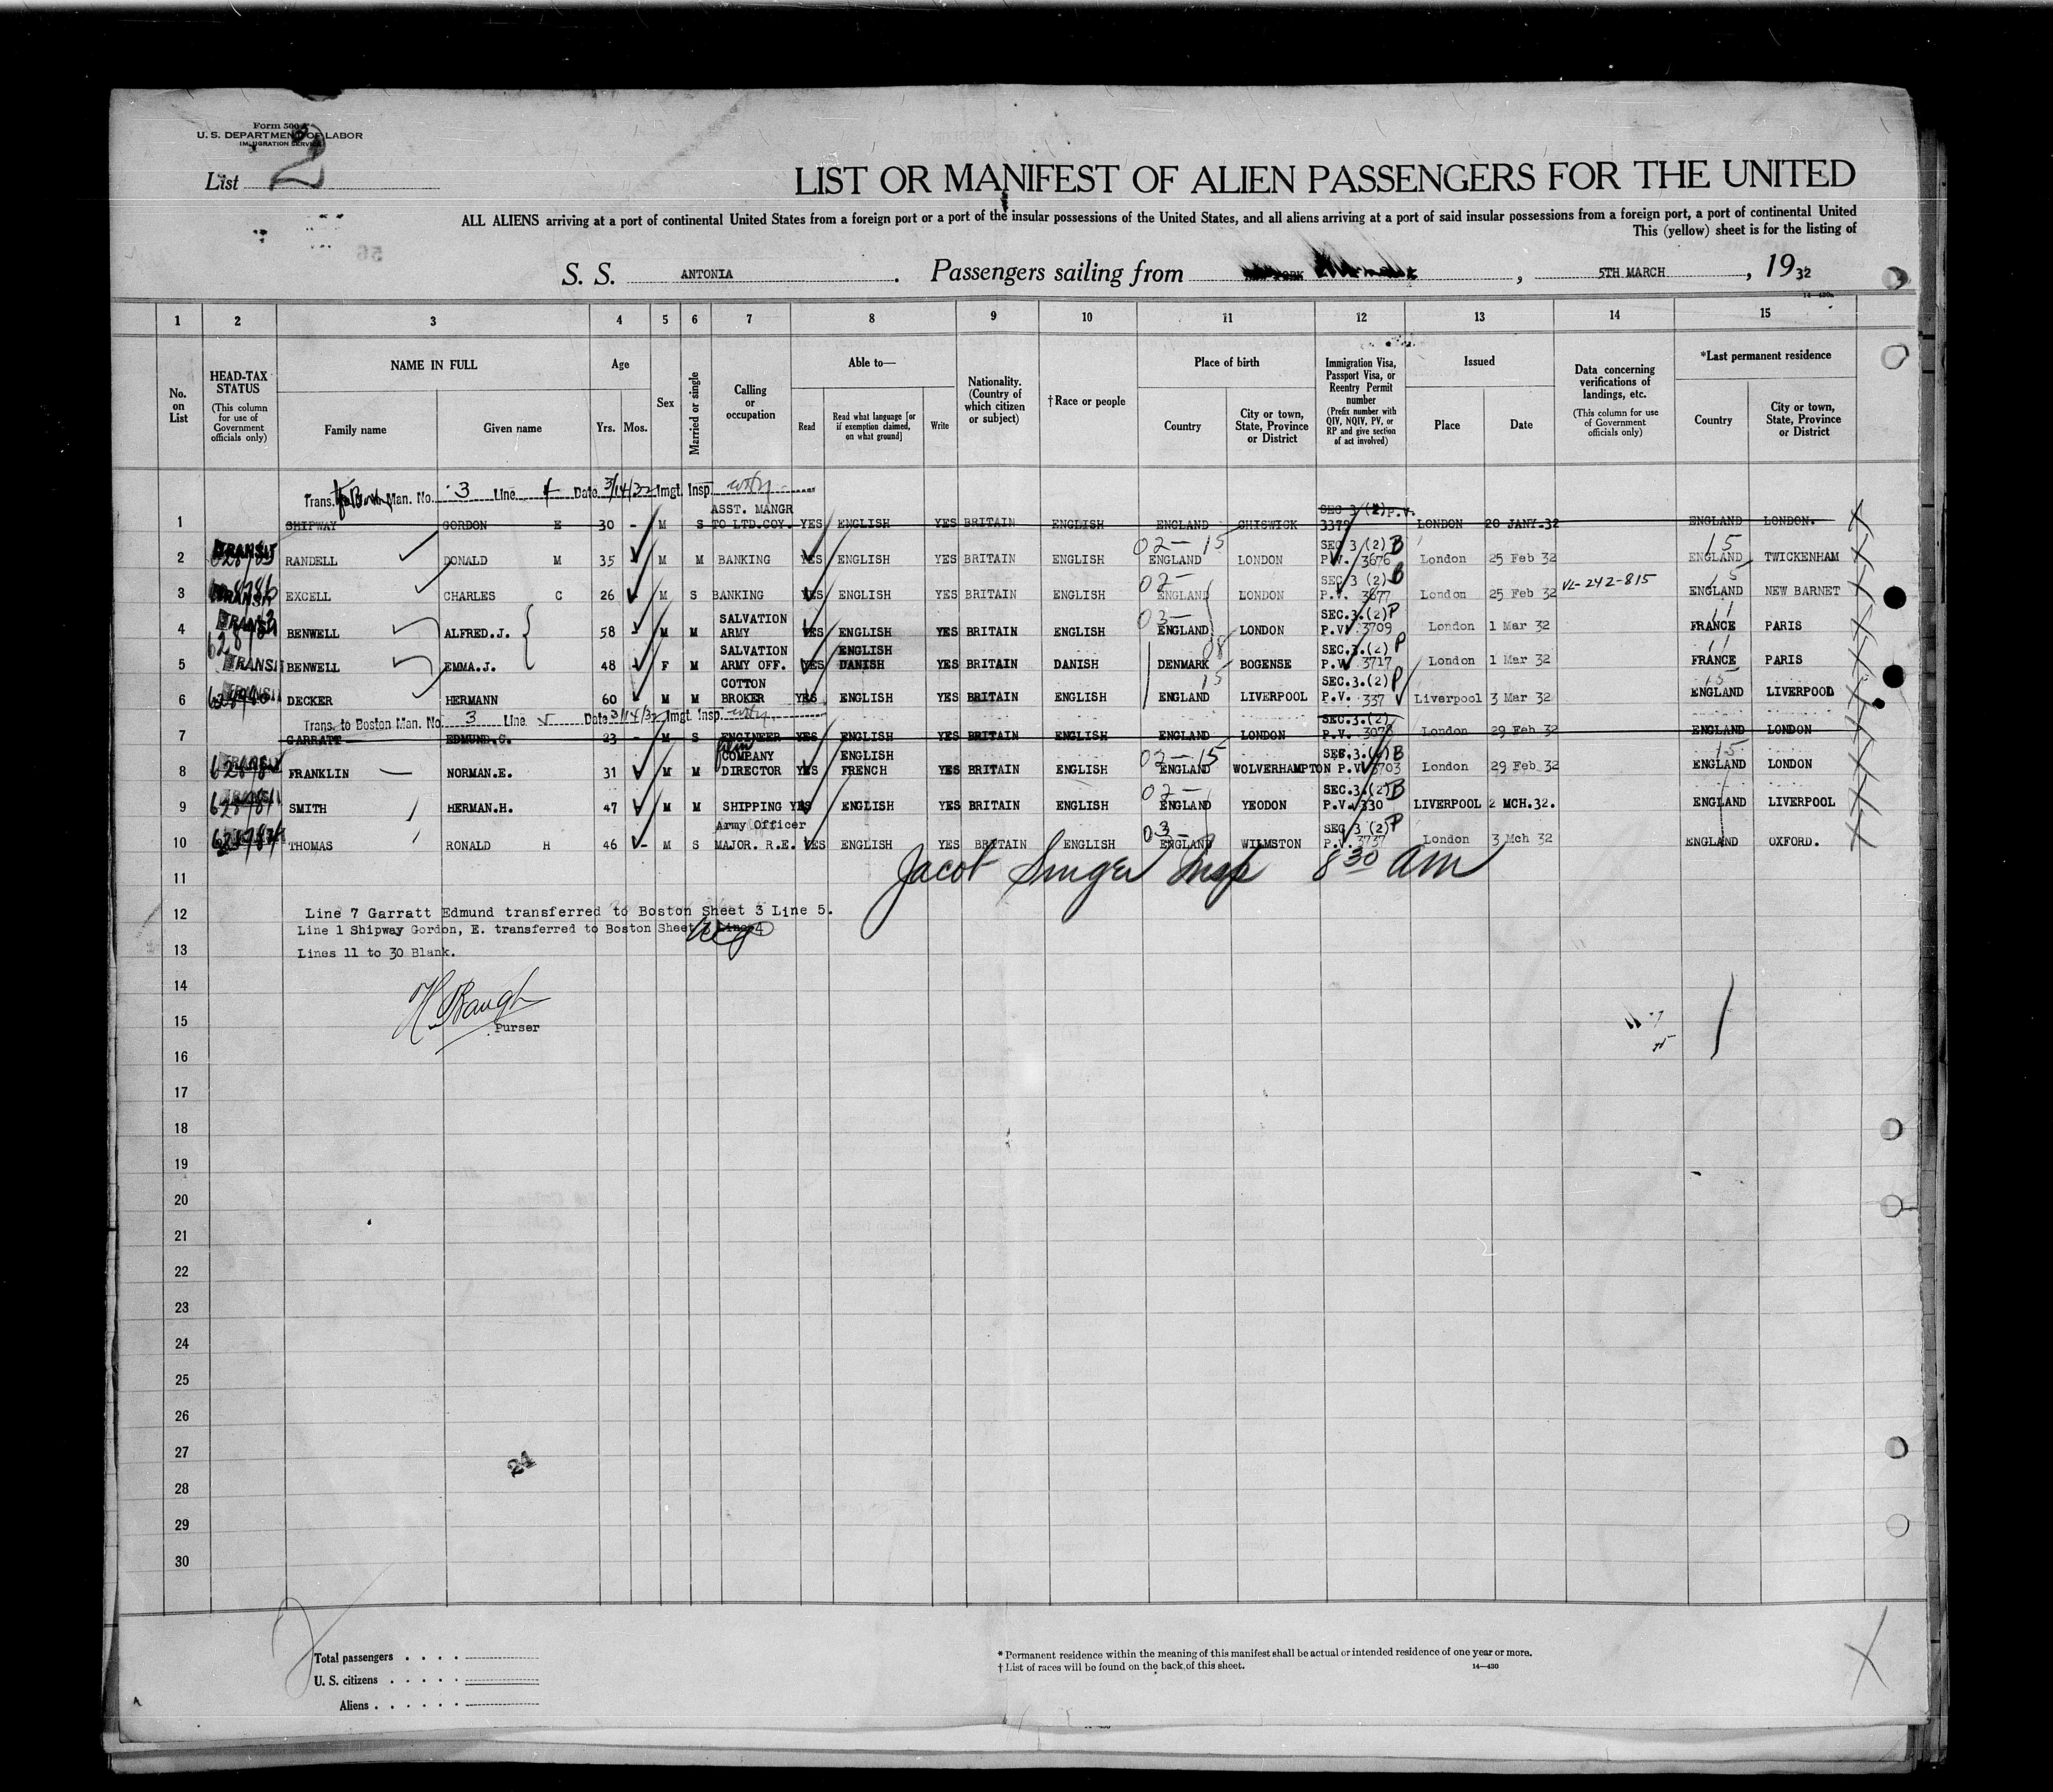 Form 500
U. S. DEPARTMENT OF LABOR
IMMIGRATION SERVICE
List 2
LIST OR MANIFEST OF ALIEN PASSENGERS FOR THE UNITED
ALL ALIENS arriving at a port of continental United States from a foreign port or a port of the insular possessions of the United States, and all aliens arriving at a port of said insular possessions from a foreign port, a port of continental United
This (yellow) sheet is for the listing of
56
S. S. ANTONIA . Passengers sailing from , 5TH MARCH , 1932
1 2 3 4 5 6 7 8 9 10 11 12 13 14 15
No. on List
HEAD-TAX STATUS (This column for use of Government officials only)
NAME IN FULL Family name Given name
Age Yrs. Mos.
Sex
Married or single
Calling or occupation
Able to— Read Read what language [or if exemption claimed, on what ground] Write
Nationality. (Country of which citizen or subject)
†Race or people
Place of birth Country City or town, State, Province or District
Immigration Visa, Passport Visa, or Reentry Permit number (Prefix number with QIV, NQIV, PV, or RP and give section of act involved)
Issued Place Date
Data concerning verifications of landings, etc. (This column for use of Government officials only)
*Last permanent residence Country City or town, State, Province or District
Trans. to Bos Man. No. 3 Line 4 Date 3/14/32 Imgt. Insp.
1 SHIPWAY GORDON E 30 - M S ASST. MANGR TO LTD.COY. YES ENGLISH YES BRITAIN ENGLISH ENGLAND CHISWICK SEC 3 (2) P.V. 3379 LONDON 20 JANY.32 ENGLAND LONDON.
2 TRANSIT RANDELL DONALD M 35 M M BANKING YES ENGLISH YES BRITAIN ENGLISH 02-15 ENGLAND LONDON SEC 3 (2) B P.V. 3676 London 25 Feb 32 15 ENGLAND TWICKENHAM
3 TRANSIT EXCELL CHARLES C 26 M S BANKING YES ENGLISH YES BRITAIN ENGLISH 02- ENGLAND LONDON SEC 3 (2) B P.V. 3677 London 25 Feb 32 VL-242-815 15 ENGLAND NEW BARNET
4 TRANSIT BENWELL ALFRED.J. 58 - M M SALVATION ARMY YES ENGLISH YES BRITAIN ENGLISH 03- ENGLAND LONDON SEC.3.(2) P P.V. 3709 London 1 Mar 32 11 FRANCE PARIS
5 TRANSIT BENWELL EMMA.J. 48 F M SALVATION ARMY OFF. YES ENGLISH DANISH YES BRITAIN DANISH 08 DENMARK BOGENSE SEC.3.(2) P P.V. 3717 London 1 Mar 32 11 FRANCE PARIS
6 TRANSIT DECKER HERMANN 60 M M COTTON BROKER YES ENGLISH YES BRITAIN ENGLISH 15 ENGLAND LIVERPOOL SEC.3.(2) P P.V. 337 Liverpool 3 Mar 32 15 ENGLAND LIVERPOOL
Trans. to Boston Man. No. 3 Line 5 Date 3/14/32 Imgt. Insp.
7 GARRATT EDMUND.C. 23 - M S ENGINEER YES ENGLISH YES BRITAIN ENGLISH ENGLAND LONDON SEC.3.(2) P.V. 3078 London 29 Feb 32 ENGLAND LONDON
8 TRANSIT FRANKLIN NORMAN.E. 31 M M film COMPANY DIRECTOR YES ENGLISH FRENCH YES BRITAIN ENGLISH 02-15 ENGLAND WOLVERHAMPTON SEC.3. B P.V. 3703 London 29 Feb 32 15 ENGLAND LONDON
9 TRANSIT SMITH HERMAN.H. 47 M M SHIPPING YES ENGLISH YES BRITAIN ENGLISH 02- ENGLAND YEODON SEC.3.(2) B P.V. 330 LIVERPOOL 2 MCH.32. ENGLAND LIVERPOOL
10 THOMAS RONALD H 46 - M S Army Officer MAJOR. R.E. YES ENGLISH YES BRITAIN ENGLISH 03- ENGLAND WILMSTON SEC 3 (2) P P.V. 3737 London 3 Mch 32 ENGLAND OXFORD.
11 Jacob Singer Insp 8 30 am
12 Line 7 Garratt Edmund transferred to Boston Sheet 3 Line 5.
Line 1 Shipway Gordon, E. transferred to Boston Sheet 3 Line 4
13 Lines 11 to 30 Blank.
14
H Baugh
15 Purser
16
17
18
19
20
21
22
23
24
25
26
27
24
28
29
30
Total passengers . . . .
U. S. citizens . . . . .
Aliens . . . . . .
* Permanent residence within the meaning of this manifest shall be actual or intended residence of one year or more.
† List of races will be found on the back of this sheet. 14—430